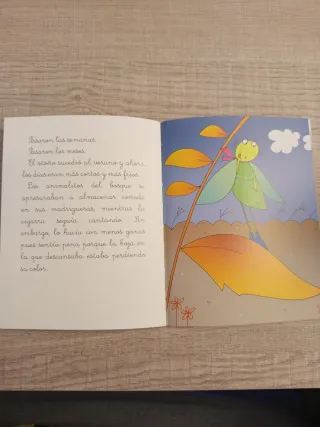 Pasaron las semanas.
Pasaron los meses.
El otoño sucedió al verano y ahora
los días eran más cortos y más fríos.
Los animalitos del bosque se
apresuraban a almacenar comida
en sus madrigueras mientras la
cigarra seguía cantando. Sin
embargo, lo hacía con menos ganas
pues sentía pena porque la hoja en
la que descansaba estaba perdiendo
su color.